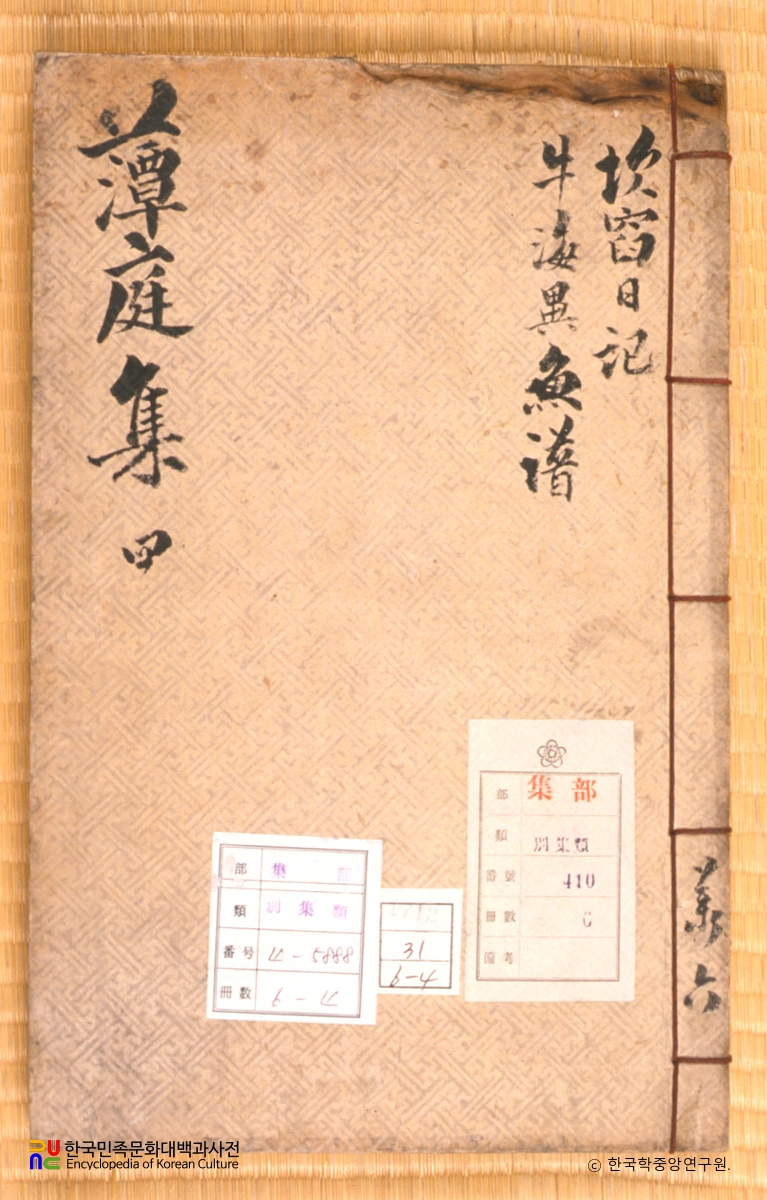 坎窞日記
牛海異魚譜
藫庭集 四
六
部 集部
類 別集類
番號 410
冊數 6
備考
部 集部
類 別集類
番号 4-5888
冊数 6-4
31
6-4
한국민족문화대백과사전
Encyclopedia of Korean Culture
© 한국학중앙연구원.